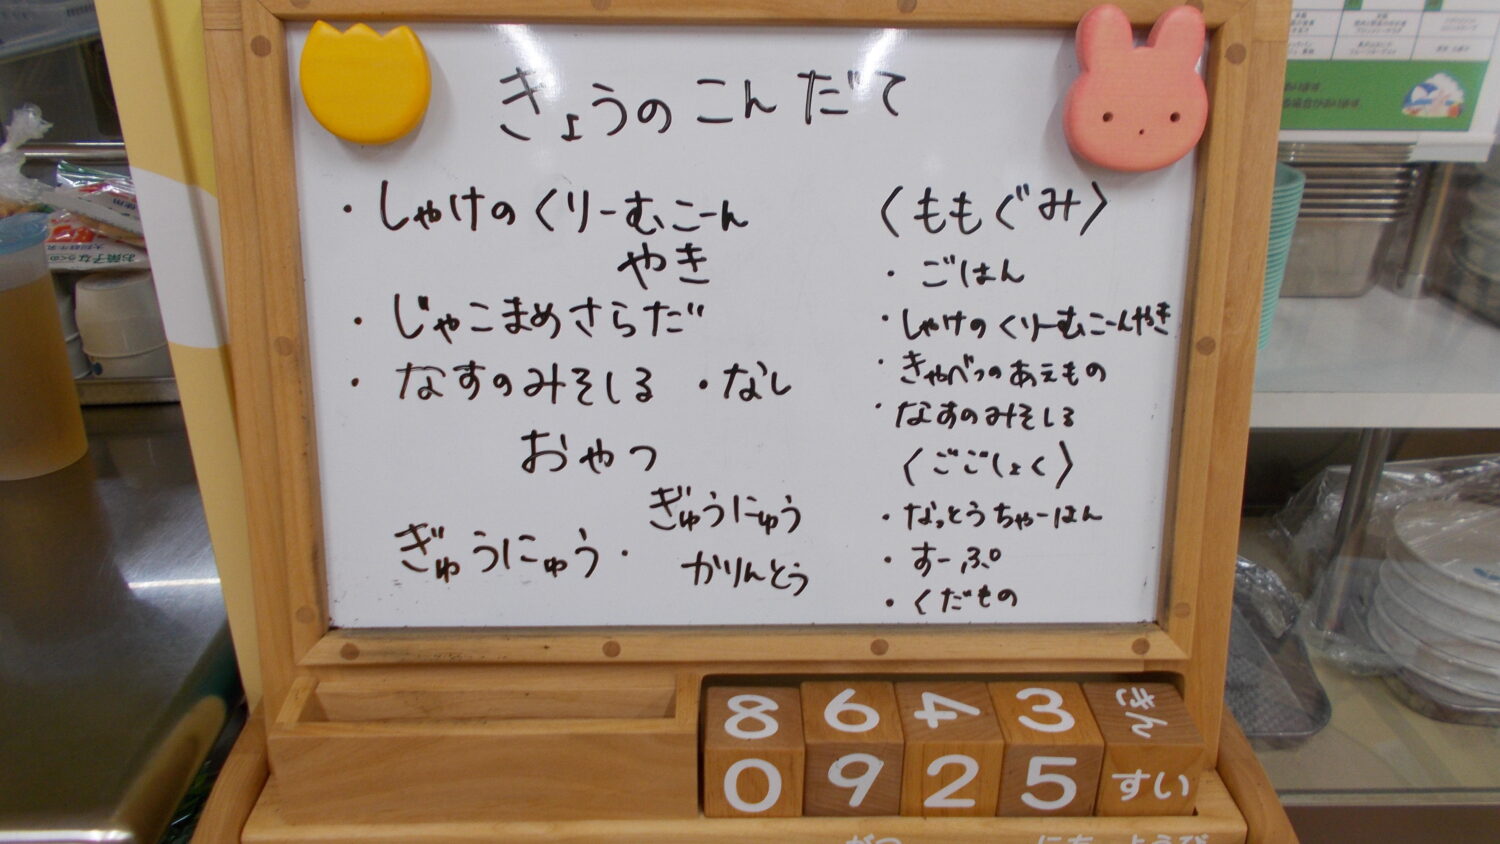 きょうのこんだて
・しゃけのくりーむこーん
やき
・じゃこまめさらだ
・なすのみそしる ・なし
おやつ
ぎゅうにゅう・
ぎゅうにゅう
かりんとう
〈ももぐみ〉
・ごはん
・しゃけのくりーむこーんやき
・きゃべつのあえもの
・なすのみそしる
〈ごごしょく〉
・なっとうちゃーはん
・すーぷ
・くだもの
8 6 4 3 きん
0 9 2 5 すい
がつ にち ようび
お菓子なっくの